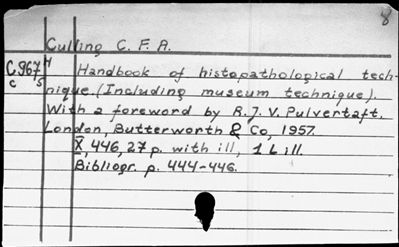 8
Culling C. F. A.
C967 H
c s
Handbook of histopathological tech-
nique. (Including museum technique).
With a foreword by R. J. V. Pulvertaft.
London, Butterworth & Co, 1957.
X, 446, 27 p. with ill, 1 L ill.
Bibliogr. p. 444-446.